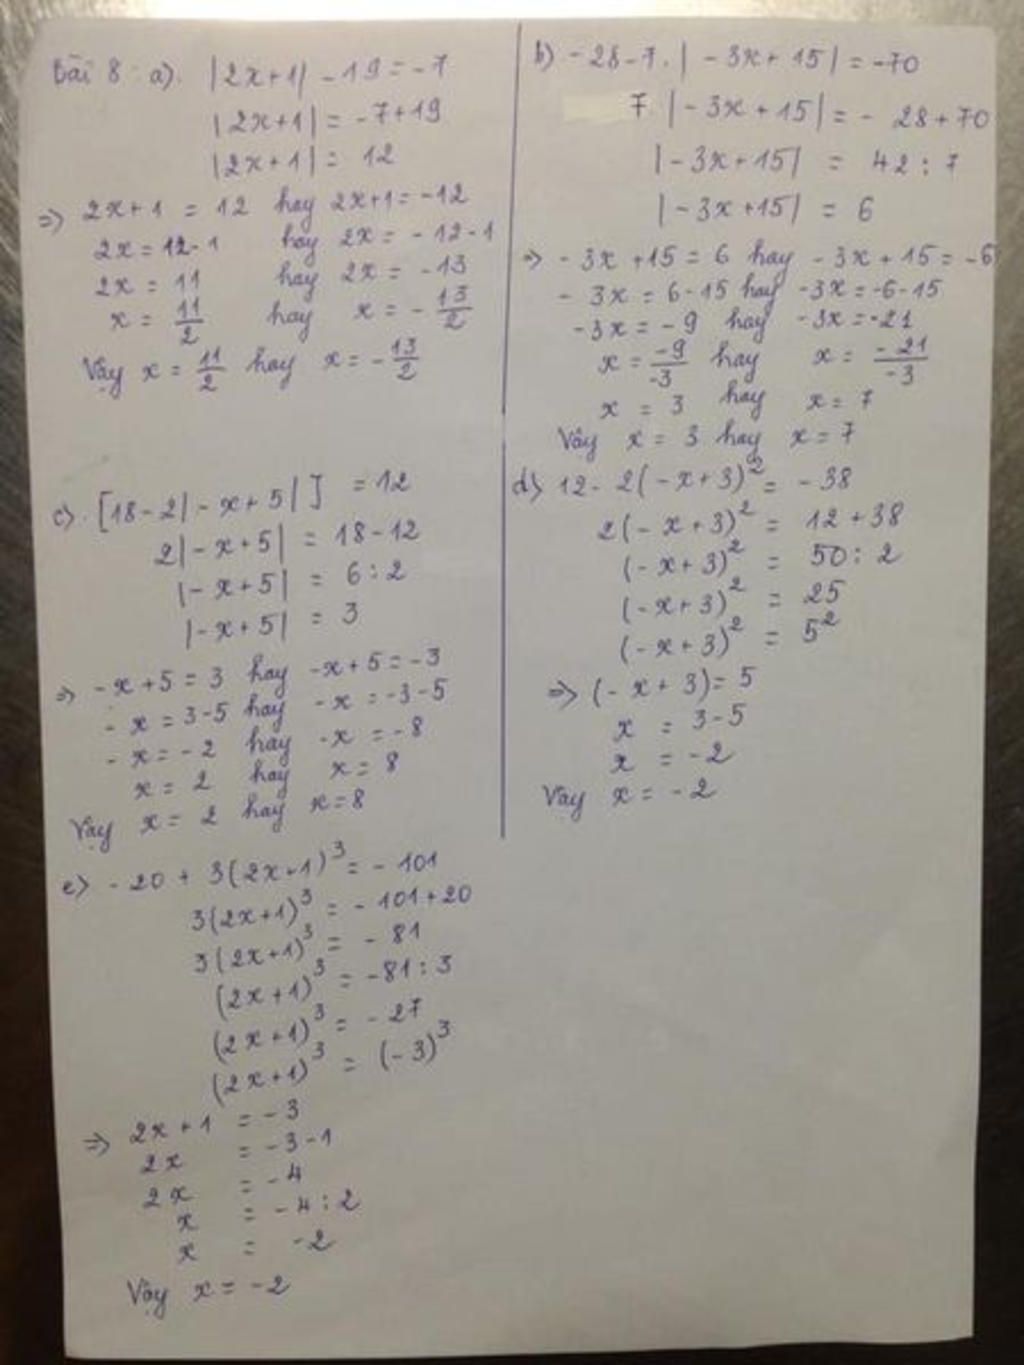 Bài 8 : a). |2x+1| - 19 = -7
|2x+1| = -7+19
|2x+1| = 12
=> 2x+1 = 12 hay 2x+1 = -12
2x = 12-1 hay 2x = -12-1
2x = 11 hay 2x = -13
x = 11/2 hay x = -13/2
Vậy x = 11/2 hay x = -13/2
b) -28-7.|-3x+15| = -70
7.|-3x+15| = - 28+70
|-3x+15| = 42 : 7
|-3x+15| = 6
=> -3x+15 = 6 hay -3x+15 = -6
-3x = 6-15 hay -3x = -6-15
-3x = -9 hay -3x = -21
x = -9/-3 hay x = -21/-3
x = 3 hay x = 7
Vậy x = 3 hay x = 7
c). [18-2|-x+5|] = 12
2|-x+5| = 18-12
|-x+5| = 6 : 2
|-x+5| = 3
=> -x+5 = 3 hay -x+5 = -3
-x = 3-5 hay -x = -3-5
-x = -2 hay -x = -8
x = 2 hay x = 8
Vậy x = 2 hay x = 8
d) 12- 2(-x+3)² = -38
2(-x+3)² = 12+38
(-x+3)² = 50 : 2
(-x+3)² = 25
(-x+3)² = 5²
=> (-x+3) = 5
x = 3-5
x = -2
Vậy x = -2
e) -20 + 3(2x+1)³ = -101
3(2x+1)³ = -101+20
3(2x+1)³ = -81
(2x+1)³ = -81 : 3
(2x+1)³ = -27
(2x+1)³ = (-3)³
=> 2x+1 = -3
2x = -3-1
2x = -4
x = -4 : 2
x = -2
Vậy x = -2